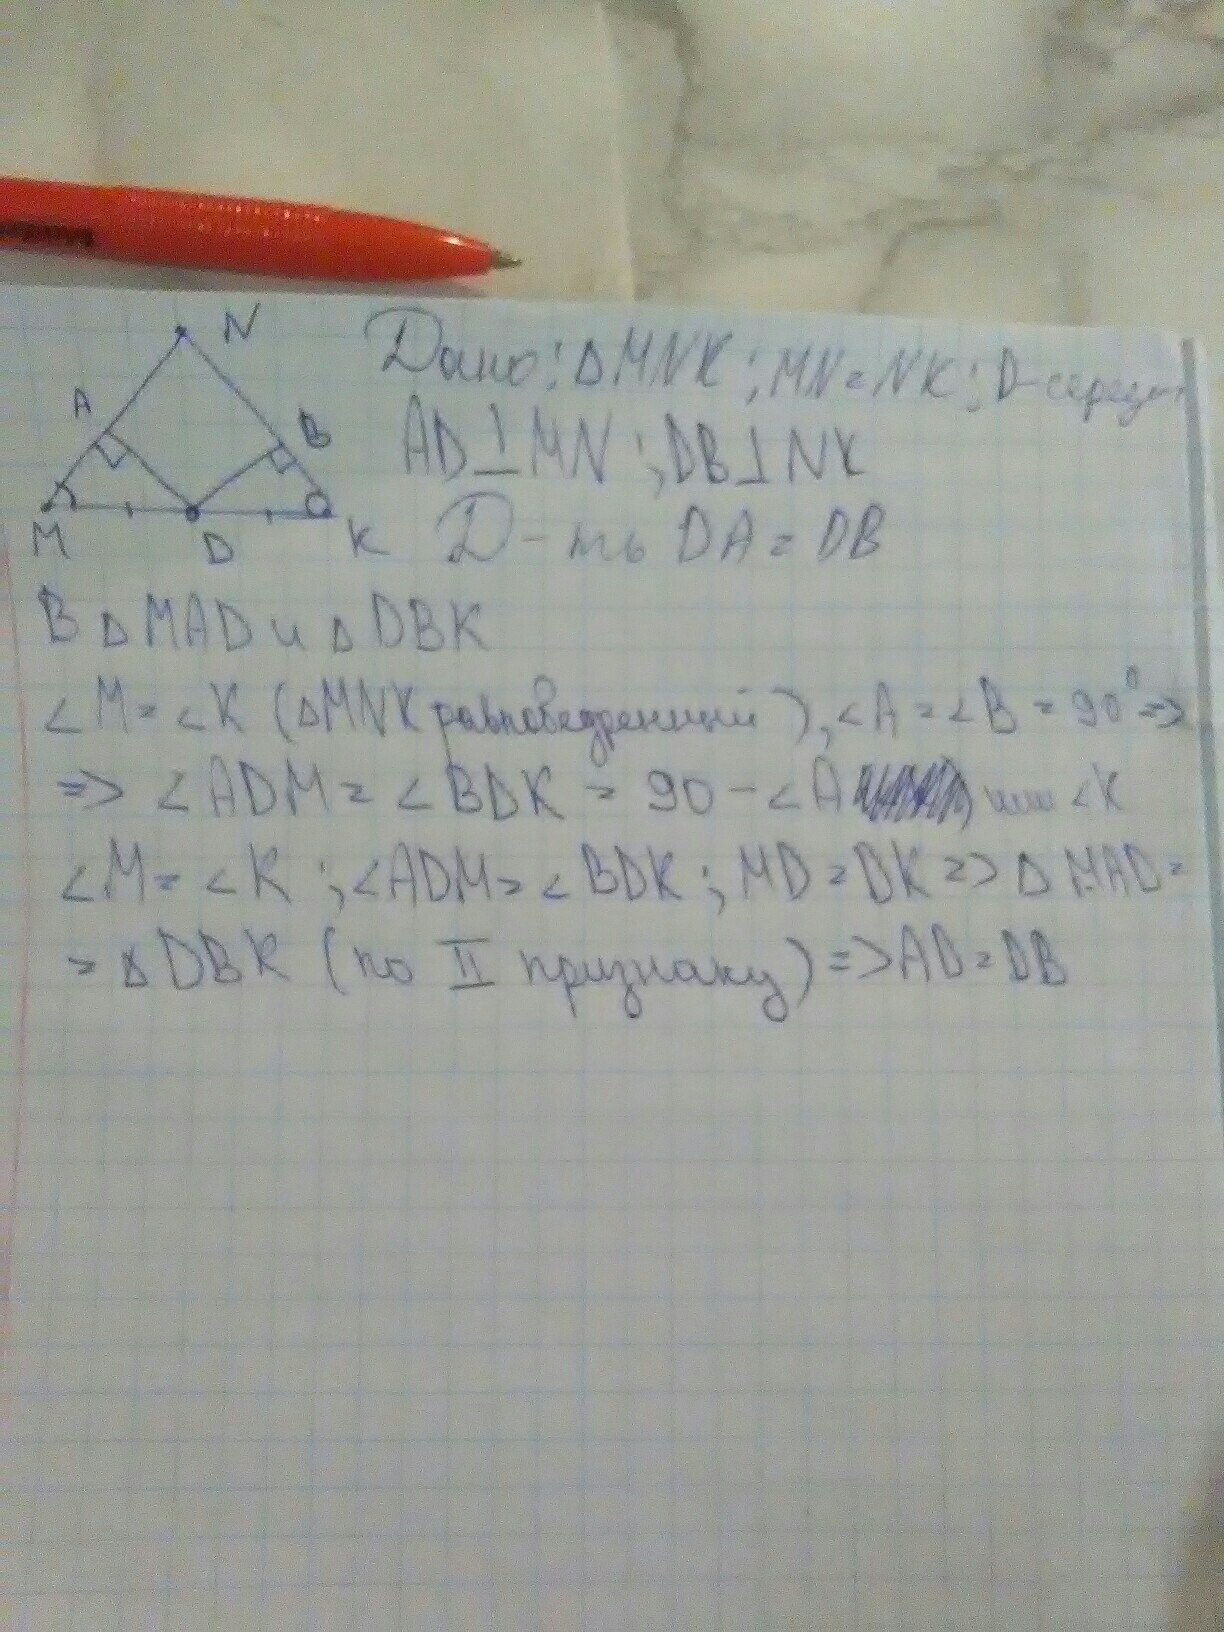 N
A
B
M
D
K
Дано: ΔMNK; MN=NK; D-середи
AD⊥MN; DB⊥NK
Д-ть DA=DB
В ΔMAD и ΔDBK
∠M=∠K (ΔMNK равнобедренный), ∠A=∠B=90⁰=>
=> ∠ADM=∠BDK=90-∠A или ∠K
∠M=∠K; ∠ADM=∠BDK; MD=DK => ΔMAD=
=ΔDBK (по II признаку) => AD=DB